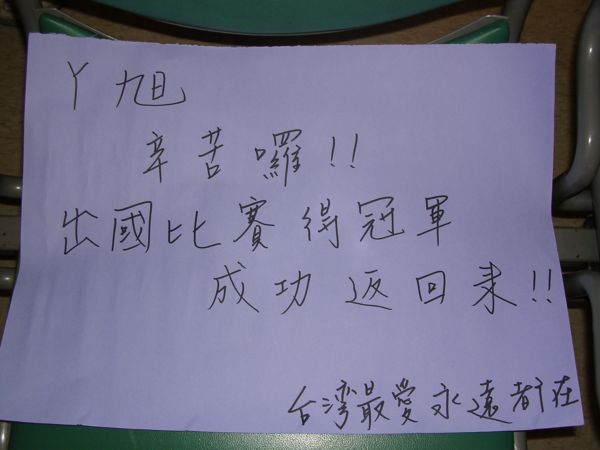 ㄚ旭
辛苦囉!!
出國比賽得冠軍
成功返回来!!
台灣最愛永遠都在